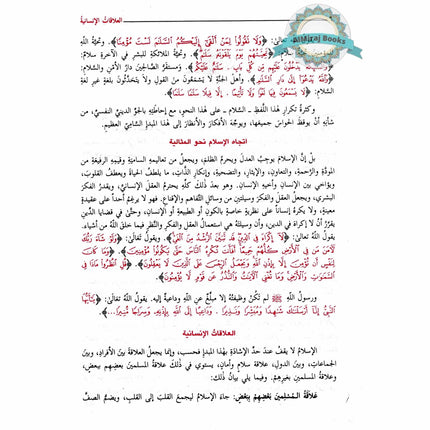 العلاقات الإنسانية
Almiraj Books
تعالى: ﴿وَلَا تَقُولُوا لِمَنْ أَلْقَىٰ إِلَيْكُمُ السَّلَامَ لَسْتَ مُؤْمِنًا﴾. وتحيّة اللّٰه
للمؤمنين تحيّة سلام: ﴿تَحِيَّتُهُمْ يَوْمَ يَلْقَوْنَهُ سَلَامٌ﴾. وتحيّة الملائكة للبشر في الآخرة سلام:
﴿يَدْخُلُونَ عَلَيْهِم مِّن كُلِّ بَابٍ ۝ سَلَامٌ عَلَيْكُم﴾. ومستقرّ الصّالحين دار الأمن والسّلام:
﴿وَاللَّهُ يَدْعُو إِلَىٰ دَارِ السَّلَامِ﴾. وأهل الجنّة لا يسمعون من القول ولا يتحدّثون بلغة غير لغة
السّلام: ﴿لَا يَسْمَعُونَ فِيهَا لَغْوًا وَلَا تَأْثِيمًا ۝ إِلَّا قِيلًا سَلَامًا سَلَامًا﴾
وكثرة تكرار هذا اللّفظ ـ السّلام ـ على هذا النحو، مع إحاطته بالجوّ الدينيّ النفسيّ، من
شأنه أن يوقظ الحواسّ جميعها، ويوجّه الأفكار والأنظار إلى هذا المبدإ السّامي العظيم.
اتجاه الإسلام نحو المثالية
بل إنّ الإسلام يوجب العدل ويحرم الظلم، ويجعل من تعاليمه السامية وقيمه الرفيعة من
المودّة والرّحمة، والتعاون، والإيثار، والتضحية، وإنكار الذّات، ما يلطّف الحياة ويعطف القلوب،
ويؤاخي بين الإنسان وأخيه الإنسان. وهو بعد ذلك كلّه يحترم العقل الإنسانيّ، ويقدر الفكر
البشريّ، ويجعل العقل والفكر وسيلتين من وسائل التّفاهم والإقناع. فهو لا يرغم أحدًا على عقيدة
معينة، ولا يكره إنسانًا على نظرية خاصة بالكون أو الطبيعة أو الإنسان، وحتّى في قضايا الدّين
يقرّر أن لا إكراه في الدين، وأن وسيلته هي استعمال العقل والفكر والنظر فيما خلق اللّٰه من أشياء.
يقول اللّٰه تعالى: ﴿لَا إِكْرَاهَ فِي الدِّينِ قَد تَّبَيَّنَ الرُّشْدُ مِنَ الْغَيِّ﴾. ويقول تعالى: ﴿وَلَوْ شَاءَ رَبُّكَ
لَآمَنَ مَن فِي الْأَرْضِ كُلُّهُمْ جَمِيعًا أَفَأَنتَ تُكْرِهُ النَّاسَ حَتَّىٰ يَكُونُوا مُؤْمِنِينَ ۝ وَمَا كَانَ
لِنَفْسٍ أَن تُؤْمِنَ إِلَّا بِإِذْنِ اللَّهِ وَيَجْعَلُ الرِّجْسَ عَلَى الَّذِينَ لَا يَعْقِلُونَ ۝ قُلِ انظُرُوا مَاذَا فِي
السَّمَاوَاتِ وَالْأَرْضِ وَمَا تُغْنِي الْآيَاتُ وَالنُّذُرُ عَن قَوْمٍ لَّا يُؤْمِنُونَ﴾.
ورسول اللّٰه ﷺ لم تكن وظيفته إلا مبلّغ عن اللّٰه وداعية إليه. يقول اللّٰه تعالى: ﴿يَا أَيُّهَا
النَّبِيُّ إِنَّا أَرْسَلْنَاكَ شَاهِدًا وَمُبَشِّرًا وَنَذِيرًا ۝ وَدَاعِيًا إِلَى اللَّهِ بِإِذْنِهِ وَسِرَاجًا مُّنِيرًا﴾.
العلاقات الإنسانية
الإسلام لا يقف عند حدّ الإشادة بهذا المبدإ فحسب، وإنما يجعل العلاقة بين الأفراد، وبين
الجماعات، وبين الدول، علاقة سلام وأمان، يستوي في ذلك علاقة المسلمين بعضهم ببعض،
وعلاقة المسلمين بغيرهم. وفيما يلي بيان ذلك:
علاقة المسلمين بعضهم ببعض: جاء الإسلام ليجمع القلب إلى القلب، ويضمّ الصفّ